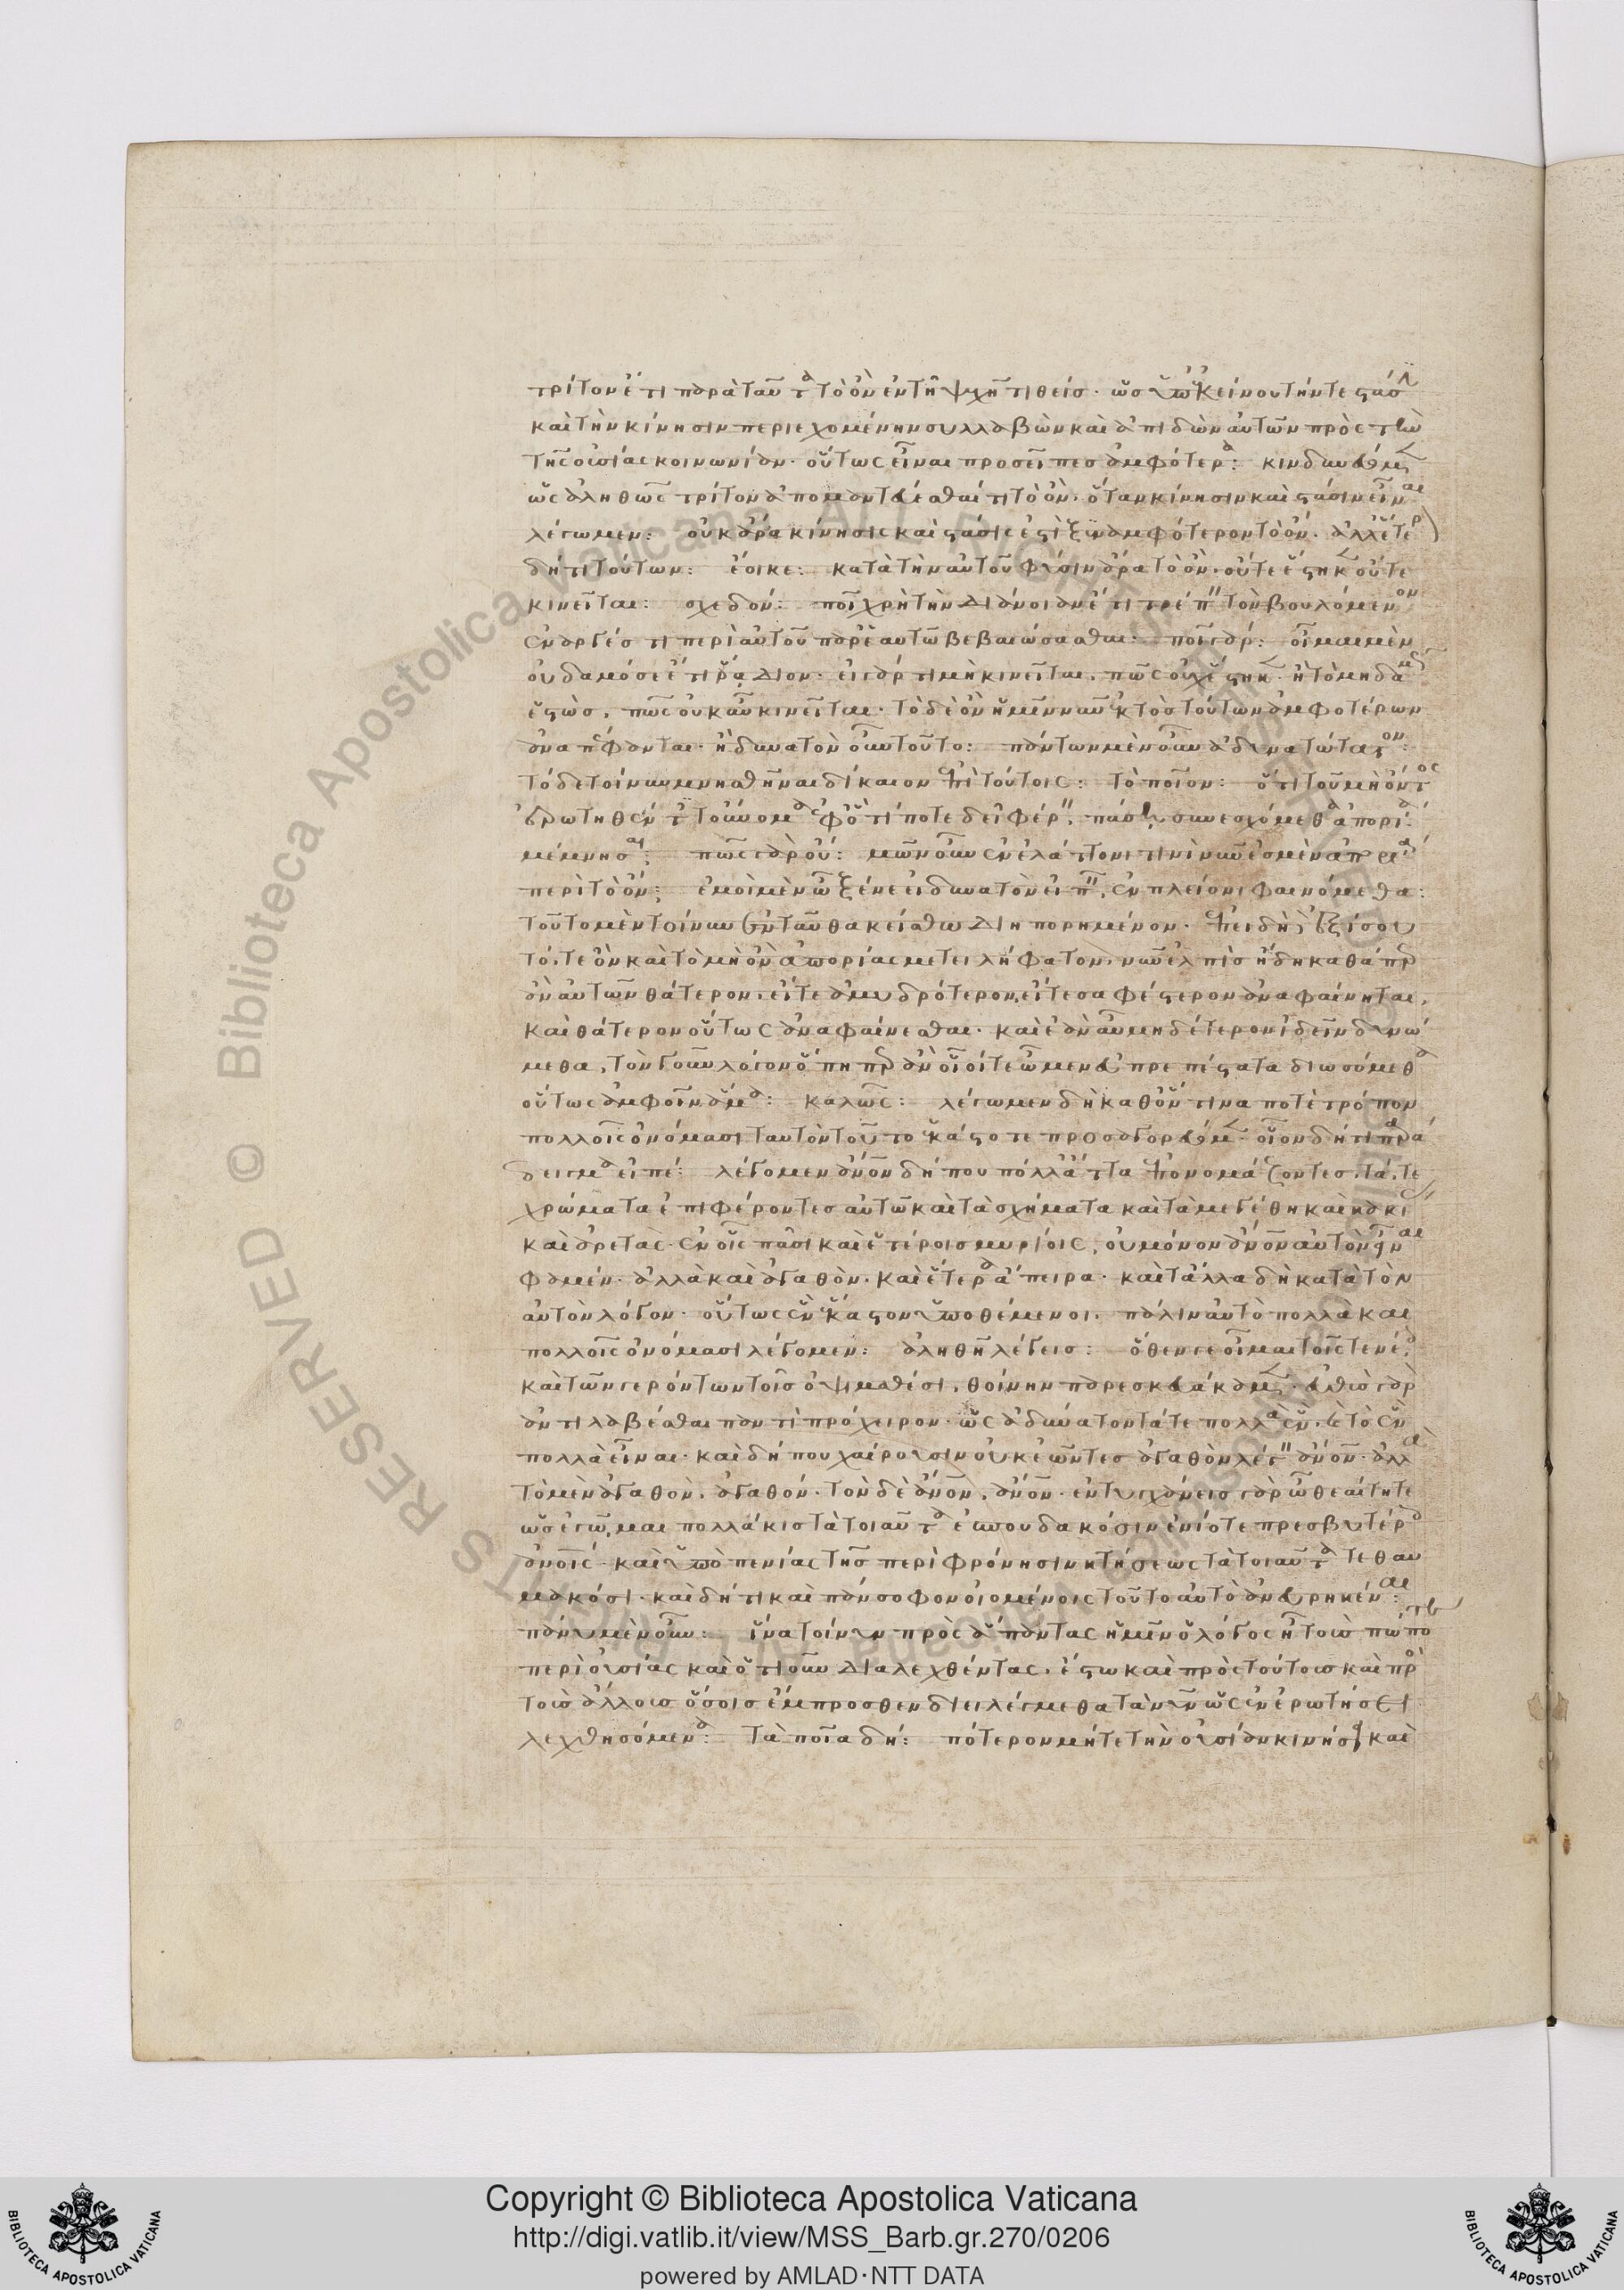 τρίτον ἔτι παρὰ ταῦτα τὸ ὂν ἐν τῆ ψυχῆ τιθείσ· ὡσ ὑπ' ἐκείνου τήν τε στάσιν
καὶ τὴν κίνησιν περιεχομένην συλλαβὼν καὶ ἀπιδὼν αὐτῶν πρὸς τὴν
τῆς οὐσίας κοινωνίαν· οὕτως εἶναι προσεῖπες ἀμφότερα: κινδυνεύομεν
ὡς ἀληθῶς τρίτον ἀπομαντεύεσθαί τι τὸ ὄν· ὅταν κίνησιν καὶ στάσιν εἶναι
λέγωμεν: οὐκ ἄρα κίνησις καὶ στάσις ἐστὶ ξυναμφότερον τὸ ὄν· ἀλλ' ἕτερον
δή τι τούτων: ἔοικε: κατὰ τὴν αὐτοῦ φύσιν ἄρα τὸ ὄν· οὔτε ἕστηκεν οὔτε
κινεῖται: σχεδόν: ποῖ χρὴ τὴν διάνοιαν ἔτι τρέπειν τὸν βουλόμενον
ἐναργές τι περὶ αὐτοῦ παρ' ἑαυτῶ βεβαιώσασθαι· ποῖ γάρ: οἶμαι μὲν
οὐδαμόσε ἔτι ῥάδιον· εἰ γάρ τι μὴ κινεῖται, πῶς οὐχ ἕστηκεν· ἢ τὸ μηδαμῶς
ἑστὼσ, πῶς οὐκ αὖ κινεῖται· τὸ δὲ ὂν ἡμῖν νῦν ἐκτὸσ τούτων ἀμφοτέρων
ἀναπέφανται· ἢ δυνατὸν οὖν τοῦτο: πάντων μὲν οὖν ἀδυνατώτατον:
τόδε τοίνυν μνησθῆναι δίκαιον ἐπὶ τούτοις: τὸ ποῖον: ὅτι τοῦ μὴ ὄντος
ἐρωτηθέντες τοὔνομα ἐφ' ὅ τί ποτε δεῖ φέρειν, πάσῃ συνεσχόμεθα ἀπορίᾳ·
μέμνησαι: πῶς γὰρ οὔ: μῶν οὖν ἐν ἐλάττονι τινὶ νῦν ἐσμὲν ἀπορίᾳ
περὶ τὸ ὄν: ἐμοὶ μὲν ὦ ξένε εἰ δυνατὸν εἰπεῖν, ἐν πλείονι φαινόμεθα:
τοῦτο μὲν τοίνυν ἐνταῦθα κείσθω διηπορημένον· ἐπειδὴ δὲ ἐξίσου
τό, τε ὂν καὶ τὸ μὴ ὂν ἀπορίας μετειλήφατον, νῦν ἐλπὶσ ἤδη καθάπερ
ἂν αὐτῶν θάτερον, εἴτε ἀμυδρότερον, εἴτε σαφέστερον ἀναφαίνηται,
καὶ θάτερον οὕτως ἀναφαίνεσθαι· καὶ ἐὰν αὖ μηδέτερον ἰδεῖν δυνώ
μεθα, τὸν γοῦν λόγον ὅπηπερ ἂν οἷοί τε ὦμεν εὐπρεπέστατα διωσόμεθα
οὕτως ἀμφοῖν ἅμα: καλῶς: λέγωμεν δὴ καθ' ὅν τινα ποτὲ τρόπον
πολλοῖς ὀνόμασι ταυτὸν τοῦτο ἑκάστοτε προσαγορεύομεν· οἷον δή τι παρά
δειγμα εἰπέ: λέγομεν ἄνον δή που πόλλ' ἄττα ἐπονομάζοντεσ, τά, τε
χρώματα ἐπιφέροντεσ αὐτῶ καὶ τὰ σχήματα καὶ τὰ μεγέθη καὶ κακίας
καὶ ἀρετάς· ἐν οἷς πᾶσι καὶ ἑτέροισ μυρίοις, οὐ μόνον ἄνον αὐτὸν εἶναι
φαμέν· ἀλλὰ καὶ ἀγαθὸν· καὶ ἕτερα ἄπειρα· καὶ τἄλλα δὴ κατὰ τὸν
αὐτὸν λόγον· οὕτως ἓν ἕκαστον ὑποθέμενοι, πάλιν αὐτὸ πολλὰ καὶ
πολλοῖς ὀνόμασι λέγομεν: ἀληθῆ λέγεισ: ὅθεν γε οἶμαι τοῖς τε νέοις
καὶ τῶν γερόντων τοῖσ ὀψιμαθέσι, θοίνην παρεσκευάκαμεν· εὐθὺσ γὰρ
ἀντιλαβέσθαι παντὶ πρόχειρον· ὡς ἀδύνατον τά τε πολλὰ ἓν, καὶ τὸ ἓν
πολλὰ εἶναι· καὶ δή που χαίρουσιν οὐκ ἐῶντεσ ἀγαθὸν λέγειν ἄνον· ἀλλὰ
τὸ μὲν ἀγαθὸν, ἀγαθόν· τὸν δὲ ἄνον, ἄνον· ἐντυγχάνεισ γὰρ ὦ θεαίτητε
ὡσ ἐγῶμαι πολλάκισ τὰ τοιαῦτα ἐσπουδακόσιν ἐνίοτε πρεσβυτέροις
ἀνοῖς· καὶ ὑπὸ πενίας τῆσ περὶ φρόνησιν κτήσεως τὰ τοιαῦτα τεθαυ
μακόσι· καὶ δή τι καὶ πάνσοφον οἰομένοις τοῦτο αὐτὸ ἀνευρηκέναι:
πάνυ μὲν οὖν: ἵνα τοίνυν πρὸς ἅπαντας ἡμῖν ὁ λόγος ᾖ τοὺσ πώποτε
περὶ οὐσίας καὶ ὁτιοῦν διαλεχθέντας, ἔστω καὶ πρὸς τούτουσ καὶ πρὸς
τοὺσ ἄλλουσ ὅσοισ ἔμπροσθεν διειλέγμεθα τὰ νῦν ὡς ἐν ἐρωτήσει
λεχθησόμενα: τὰ ποῖα δή: πότερον μήτε τὴν οὐσίαν κινήσει καὶ
Copyright © Biblioteca Apostolica Vaticana
http://digi.vatlib.it/view/MSS_Barb.gr.270/0206
powered by AMLAD·NTT DATA
BIBLIOTECA APOSTOLICA VATICANA
BIBLIOTECA APOSTOLICA VATICANA